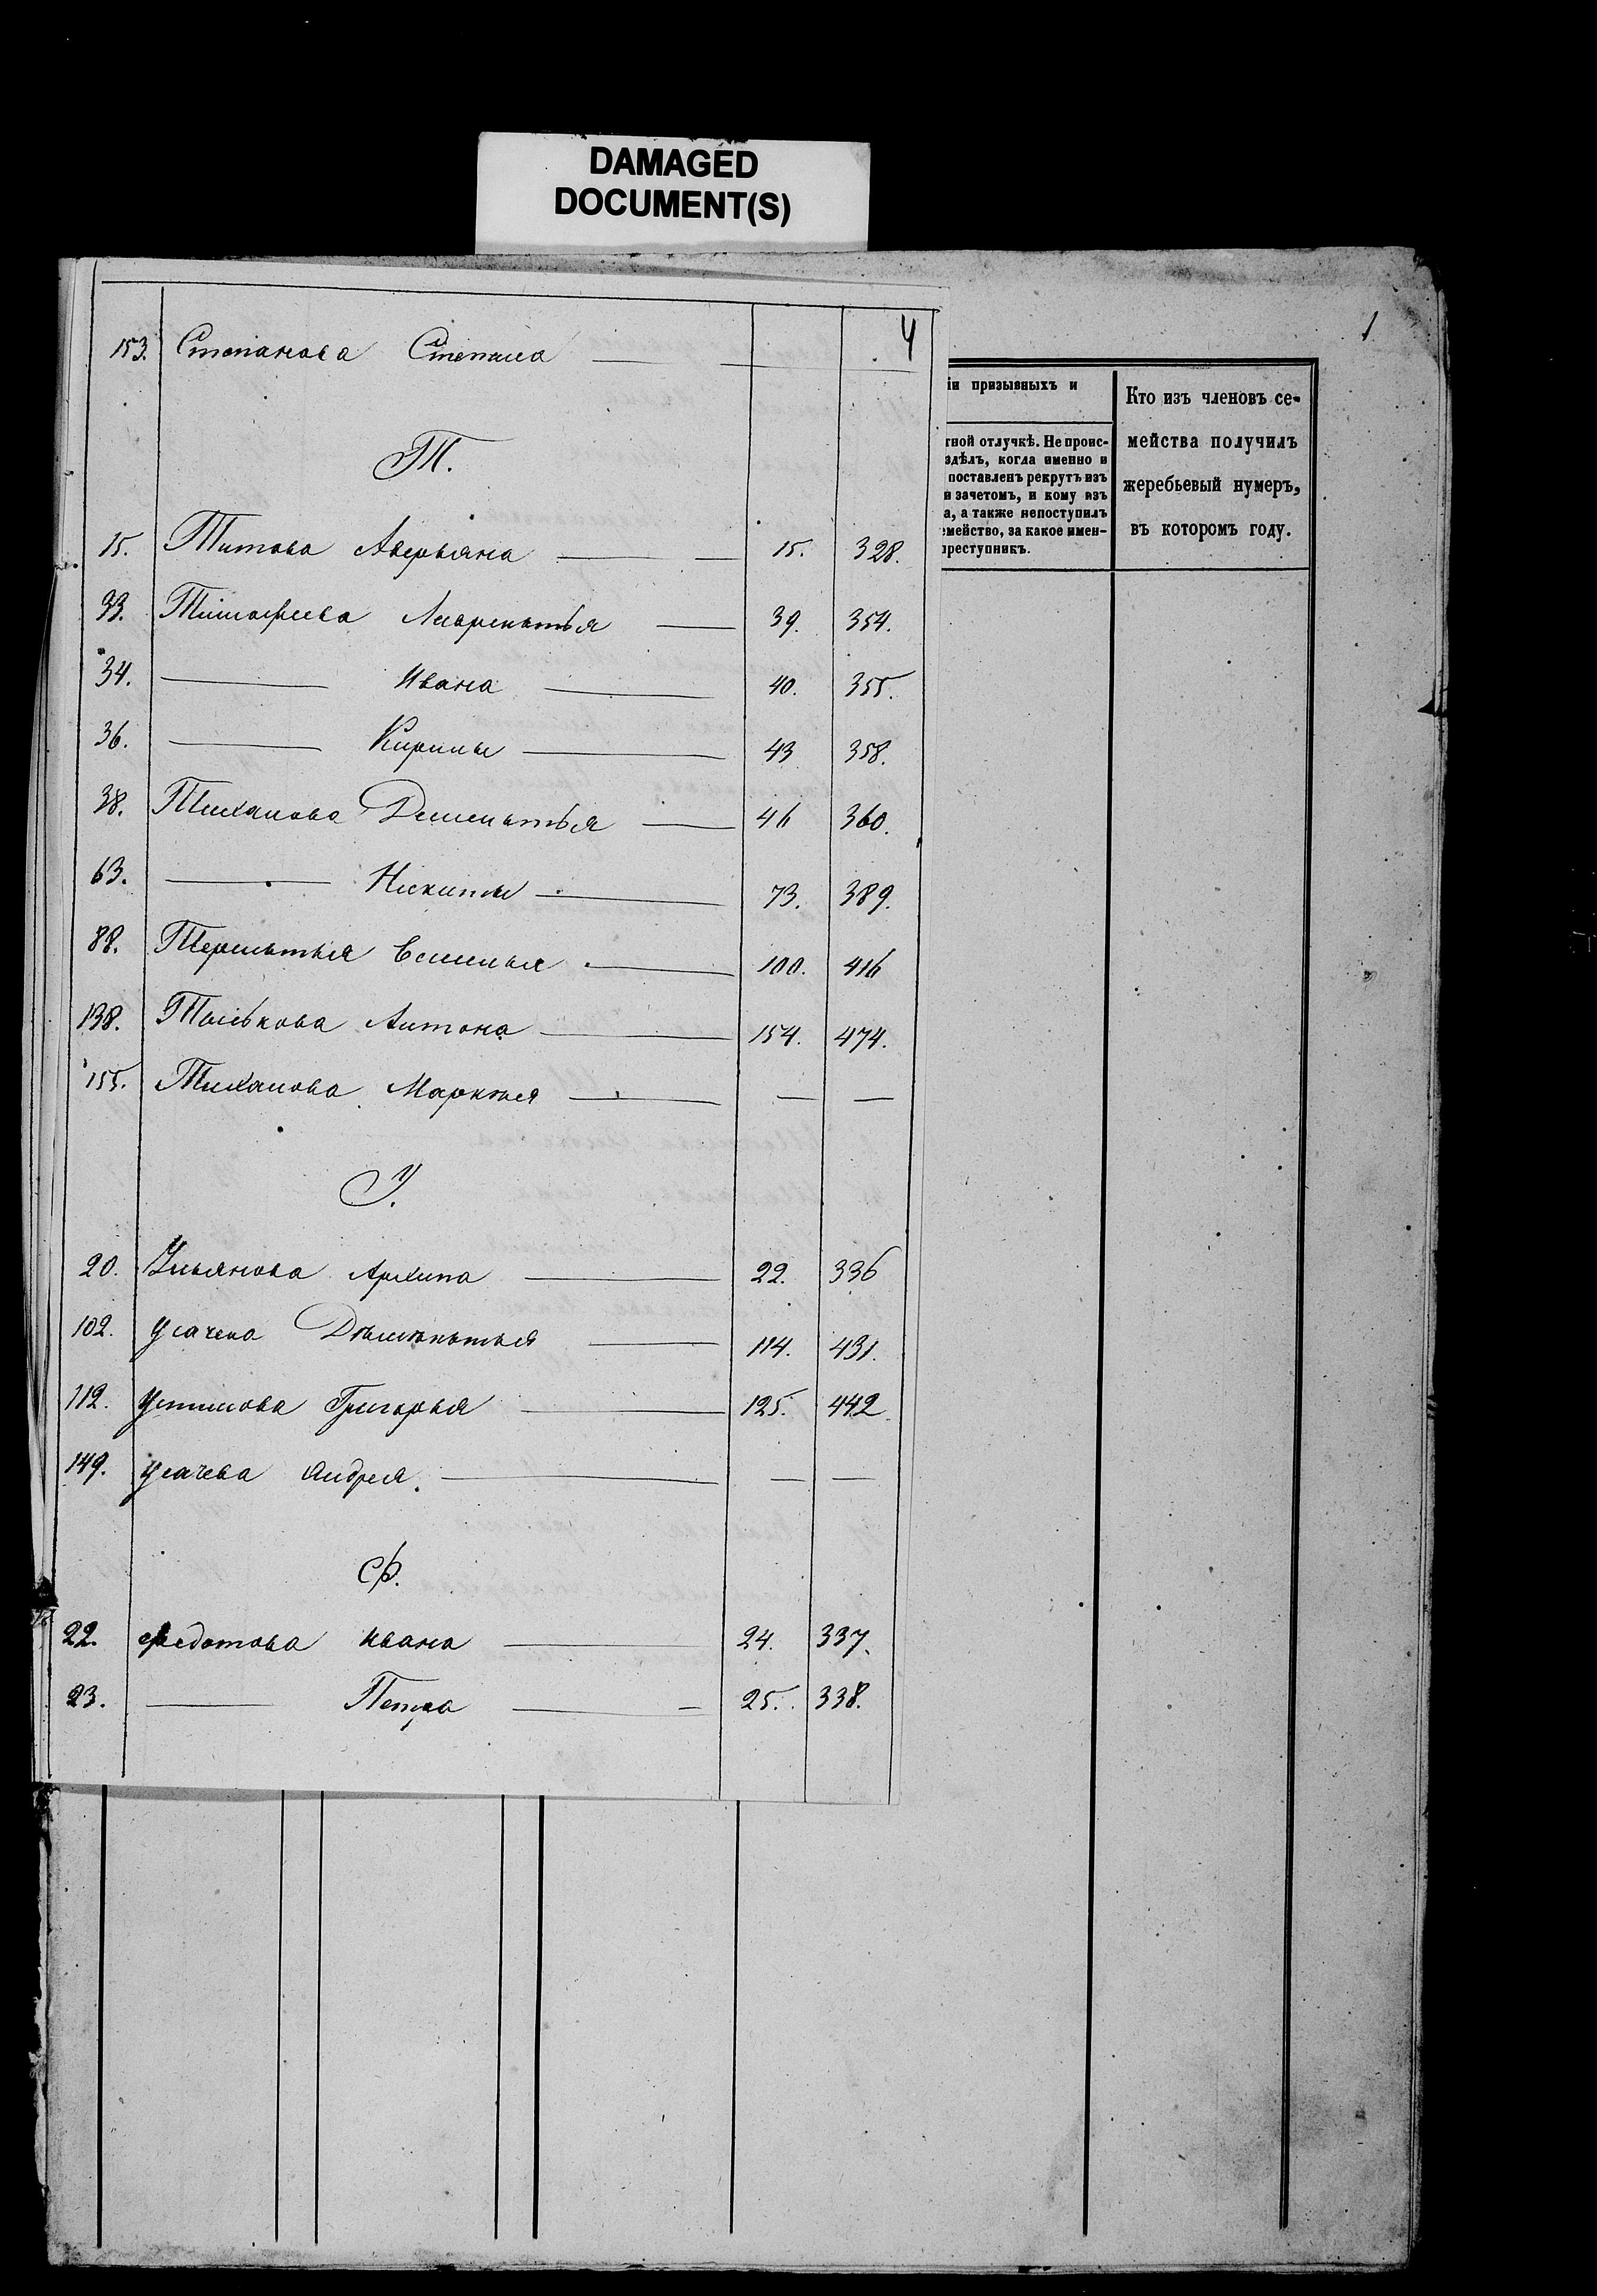 DAMAGED
DOCUMENT(S)
4
1
153. Степанова Степана
Т.
15. Титова Аверьяна 15. 328.
33. Тимофеева Лаврентья 39. 354.
34. Ивана 40. 355.
36. Кирилы 43 358.
38. Тихапова Дементья 46 360.
63. Никиты 73. 389.
88. Терентья Емельяна 100. 416
138. Антона 154. 474.
155. Тихапова Маркела
У.
20. Ульянова Архипа 22. 336
102. Усачева Дементья 114. 431.
112. Устимова Григорья 125. 442.
149. Усачева Андрея.
Ф.
22. Федотова Ивана 24. 337.
23. Петра 25. 338.
іи призывныхъ и
тной отлучкѣ. Не проис-
здѣлъ, когда именно и
поставленъ рекрутъ изъ
и зачетомъ, и кому изъ
а, а также непоступилъ
емейство, за какое имен-
преступникъ.
Кто изъ членовъ се-
мейства получилъ
жеребьевый нумеръ,
въ которомъ году.